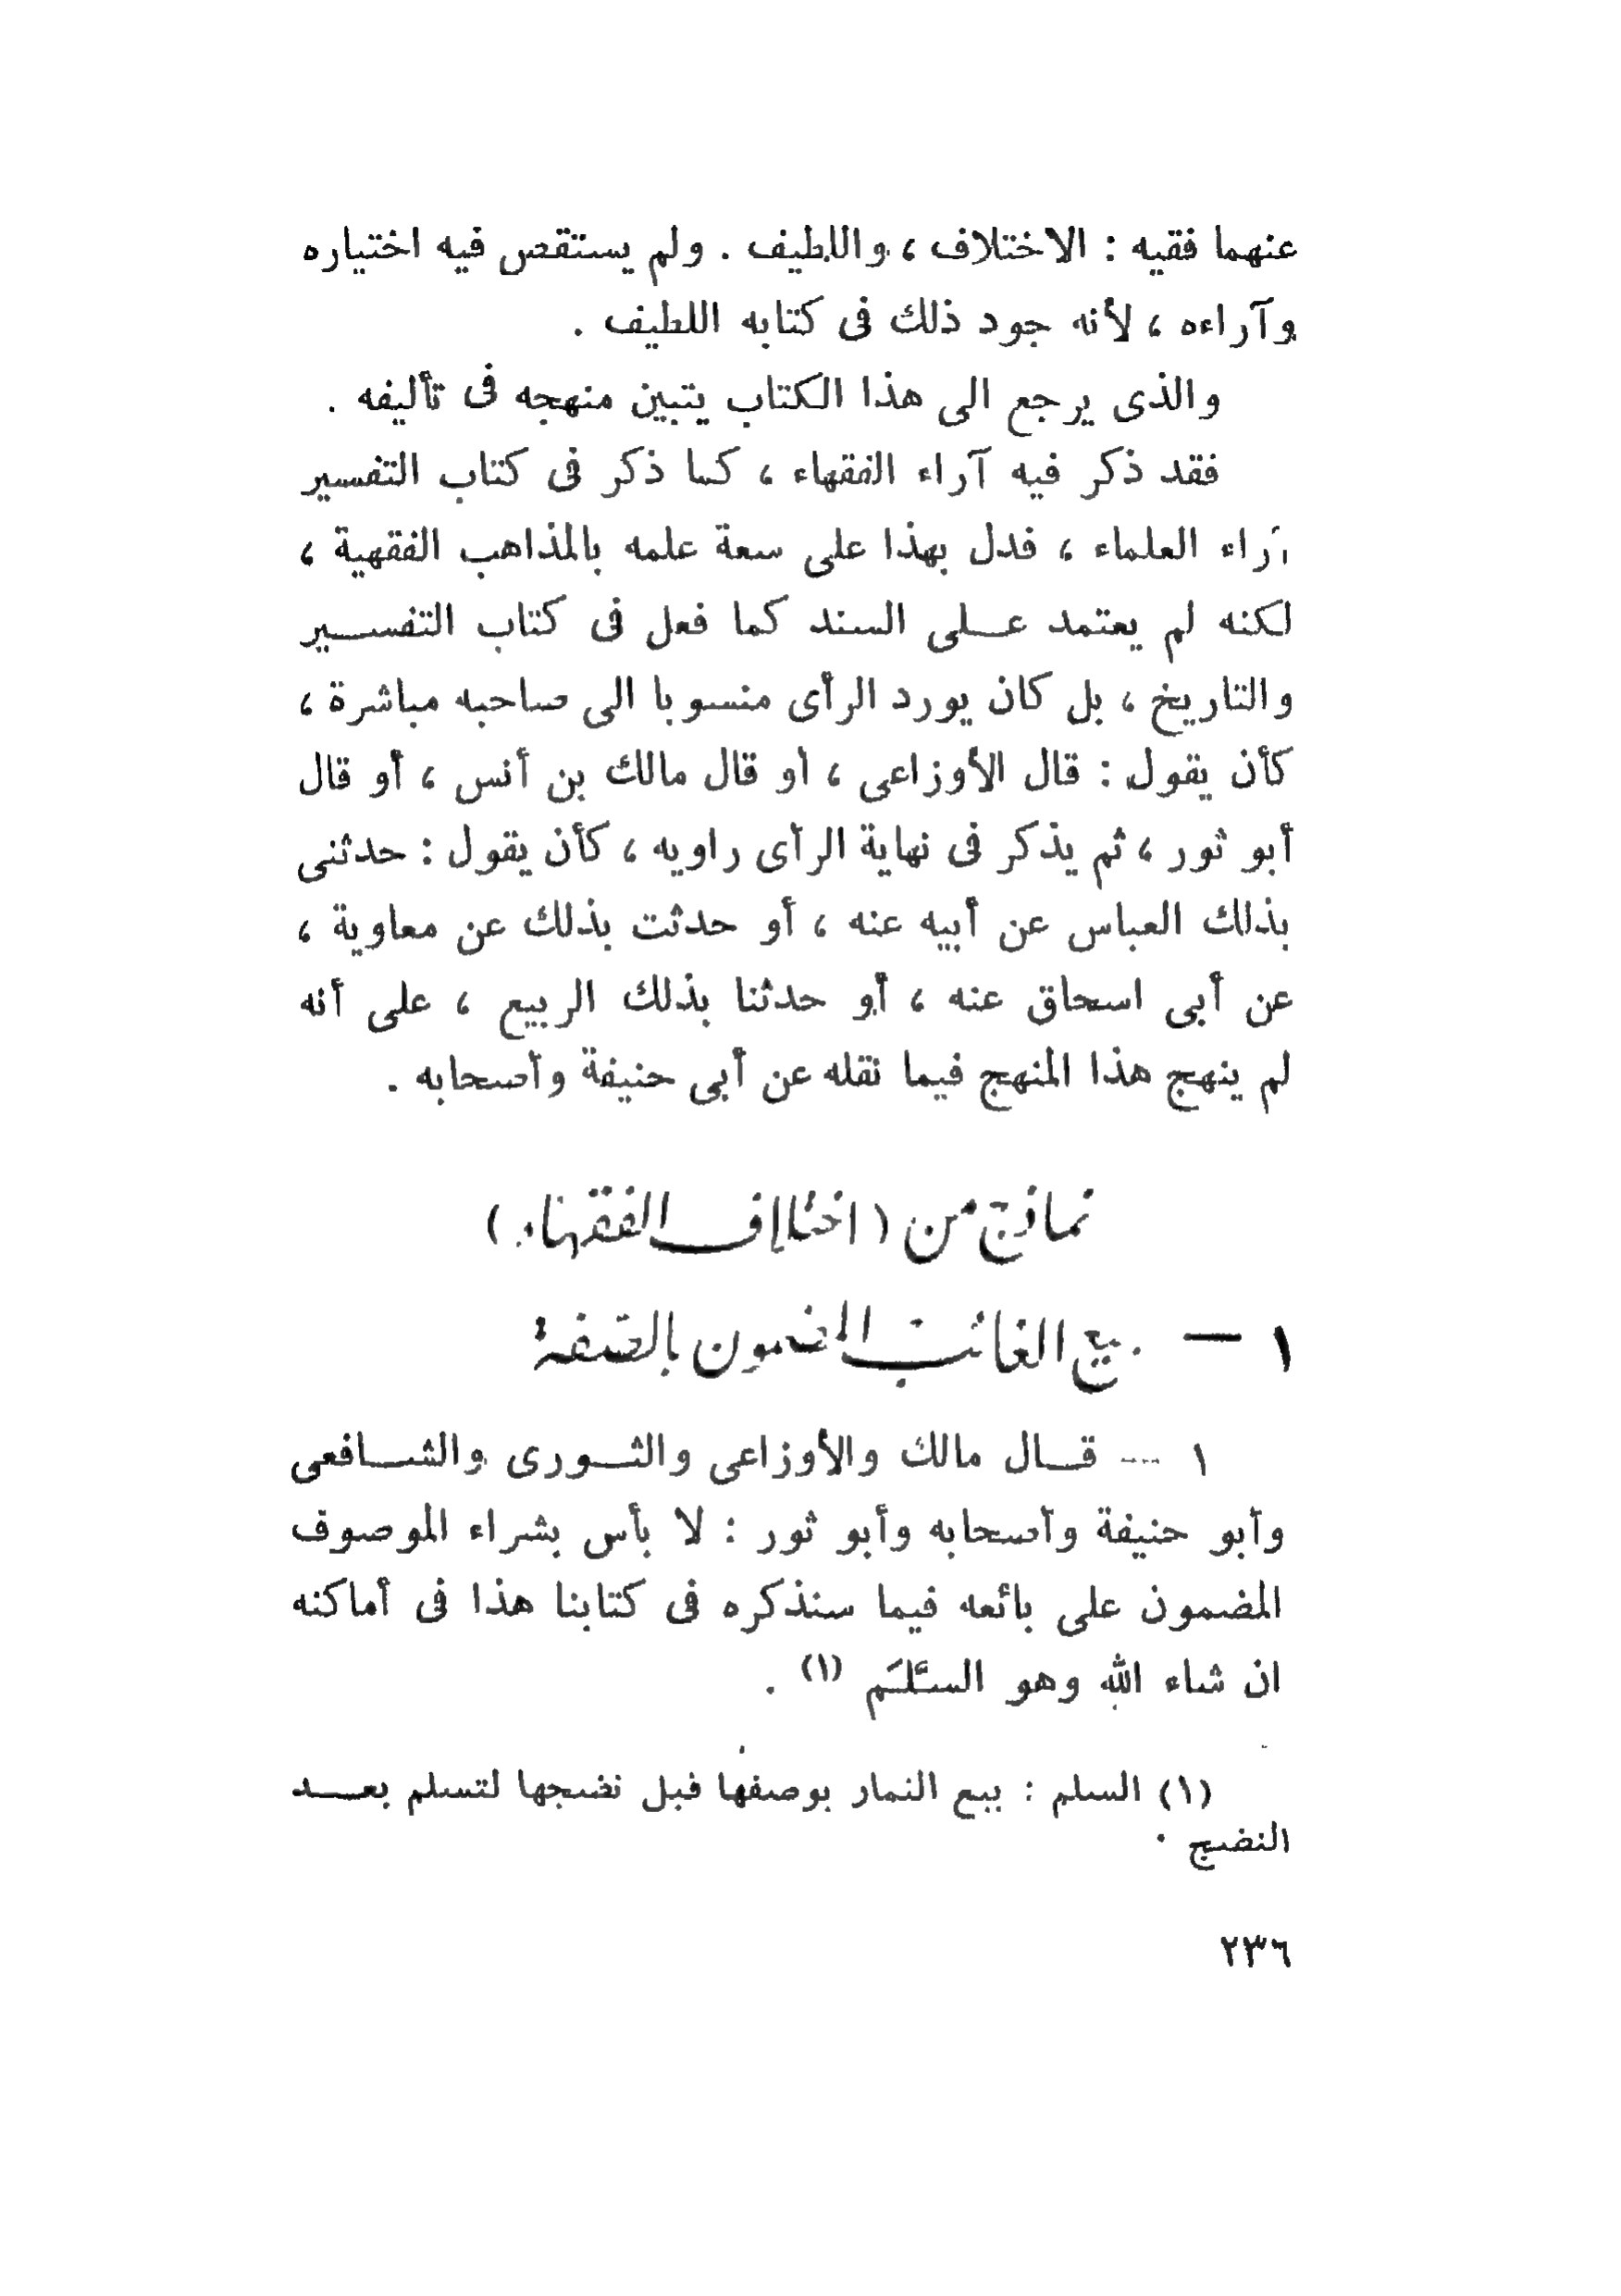 عنهما فقيه : الاختلاف ، واللطيف . ولم يستقص فيه اختياره
وآراءه ، لأنه جود ذلك فى كتابه اللطيف .
والذى يرجع الى هذا الكتاب يتبين منهجه فى تأليفه .
فقد ذكر فيه آراء الفقهاء ، كما ذكر فى كتاب التفسير
آراء العلماء ، فدل بهذا على سعة علمه بالمذاهب الفقهية ،
لكنه لم يعتمد عــلى السند كما فعل فى كتاب التفســير
والتاريخ ، بل كان يورد الرأى منسوبا الى صاحبه مباشرة ،
كأن يقول : قال الأوزاعى ، أو قال مالك بن أنس ، أو قال
أبو ثور ، ثم يذكر فى نهاية الرأى راويه ، كأن يقول : حدثنى
بذلك العباس عن أبيه عنه ، أو حدثت بذلك عن معاوية ،
عن أبى اسحاق عنه ، أو حدثنا بذلك الربيع ، على أنه
لم ينهج هذا المنهج فيما نقله عن أبى حنيفة وأصحابه .
نماذج من ( اختلاف الفقهاء )
١ — بيع الغائب المضمون بالصفة
١ — قــال مالك والأوزاعى والثــورى والشــافعى
وأبو حنيفة وأصحابه وأبو ثور : لا بأس بشراء الموصوف
المضمون على بائعه فيما سنذكره فى كتابنا هذا فى أماكنه
ان شاء الله وهو السَّلَم (١) .
(١) السلم : بيع الثمار بوصفها قبل نضجها لتسلم بعــد
النضج .
٢٣٦